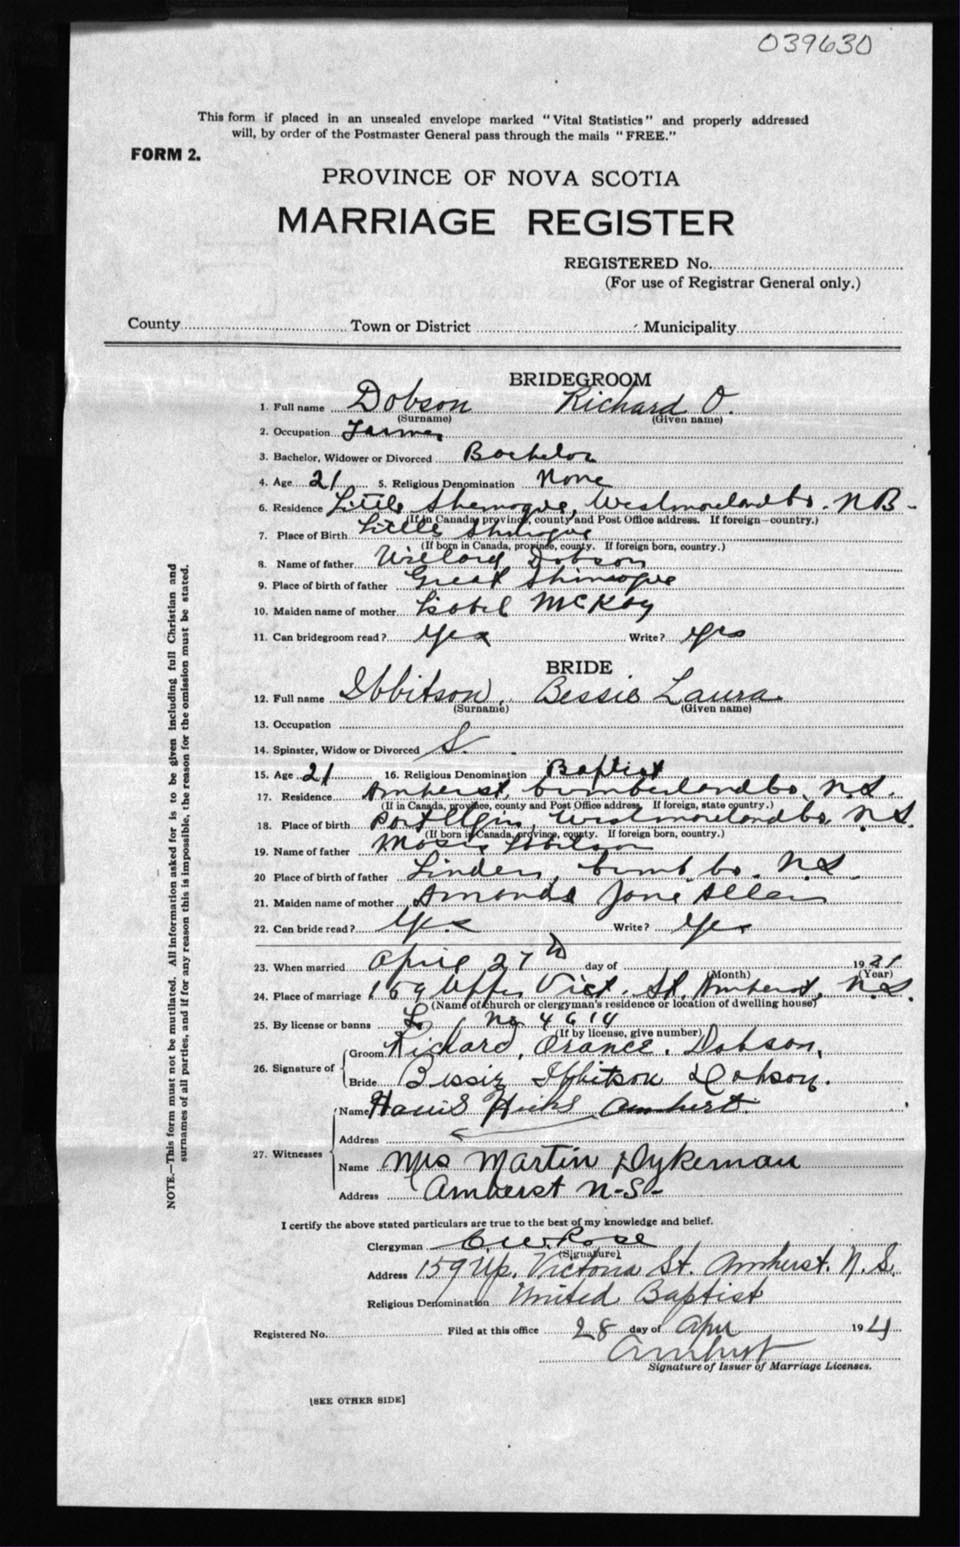 039630
This form if placed in an unsealed envelope marked "Vital Statistics" and properly addressed
will, by order of the Postmaster General pass through the mails "FREE."
FORM 2.
PROVINCE OF NOVA SCOTIA
MARRIAGE REGISTER
REGISTERED No.
(For use of Registrar General only.)
County Town or District Municipality
BRIDEGROOM
1. Full name Dobson Richard O.
(Surname) (Given name)
2. Occupation Farmer
3. Bachelor, Widower or Divorced Bachelor
4. Age 21 5. Religious Denomination None
6. Residence Little Shemogue, Westmoreland Co. N B -
(If in Canada, province, county and Post Office address. If foreign—country.)
7. Place of Birth Little
(If born in Canada, province, county. If foreign born, country.)
8. Name of father Willard Dobson
9. Place of birth of father Great
10. Maiden name of mother Isobel McKay
11. Can bridegroom read? Yes Write? Yes
BRIDE
12. Full name Ibbitson, Bessie Laura.
(Surname) (Given name)
13. Occupation
14. Spinster, Widow or Divorced S.
15. Age 21 16. Religious Denomination Baptist
17. Residence Amherst, Cumberland Co, N.S.
(If in Canada, province, county and Post Office address, If foreign, state country.)
18. Place of birth Port Elgin, Westmoreland Co, N.S.
(If born in Canada, province, county. If foreign born, country.)
19. Name of father Moses Ibbitson
20 Place of birth of father Linden, Cumb Co. N.S.
21. Maiden name of mother Amanda Jane Allen
22. Can bride read? Yes Write? Yes
23. When married April 27th day of 1921
(Month) (Year)
24. Place of marriage 159 Upper Vict. St. Amherst, N.S.
(Name of church or clergyman's residence or location of dwelling house)
25. By license or banns L No 4614
(If by license, give number)
26. Signature of Groom Richard, Orance, Dobson,
Bride Bessie Ibbitson Dobson.
27. Witnesses Name Hicks Amherst.
Address
Name Mrs Martin Dykeman
Address Amherst N-S-
I certify the above stated particulars are true to the best of my knowledge and belief.
Clergyman Rose
(Signature)
Address 159 Up. Victoria St. Amherst. N.S.
Religious Denomination United Baptist
Registered No. Filed at this office 28 day of Apr 192
Amherst
Signature of Issuer of Marriage Licenses.
[SEE OTHER SIDE]
NOTE.—This form must not be mutilated. All information asked for is to be given including full Christian and
surnames of all parties, and if for any reason this is impossible, the reason for the omission must be stated.